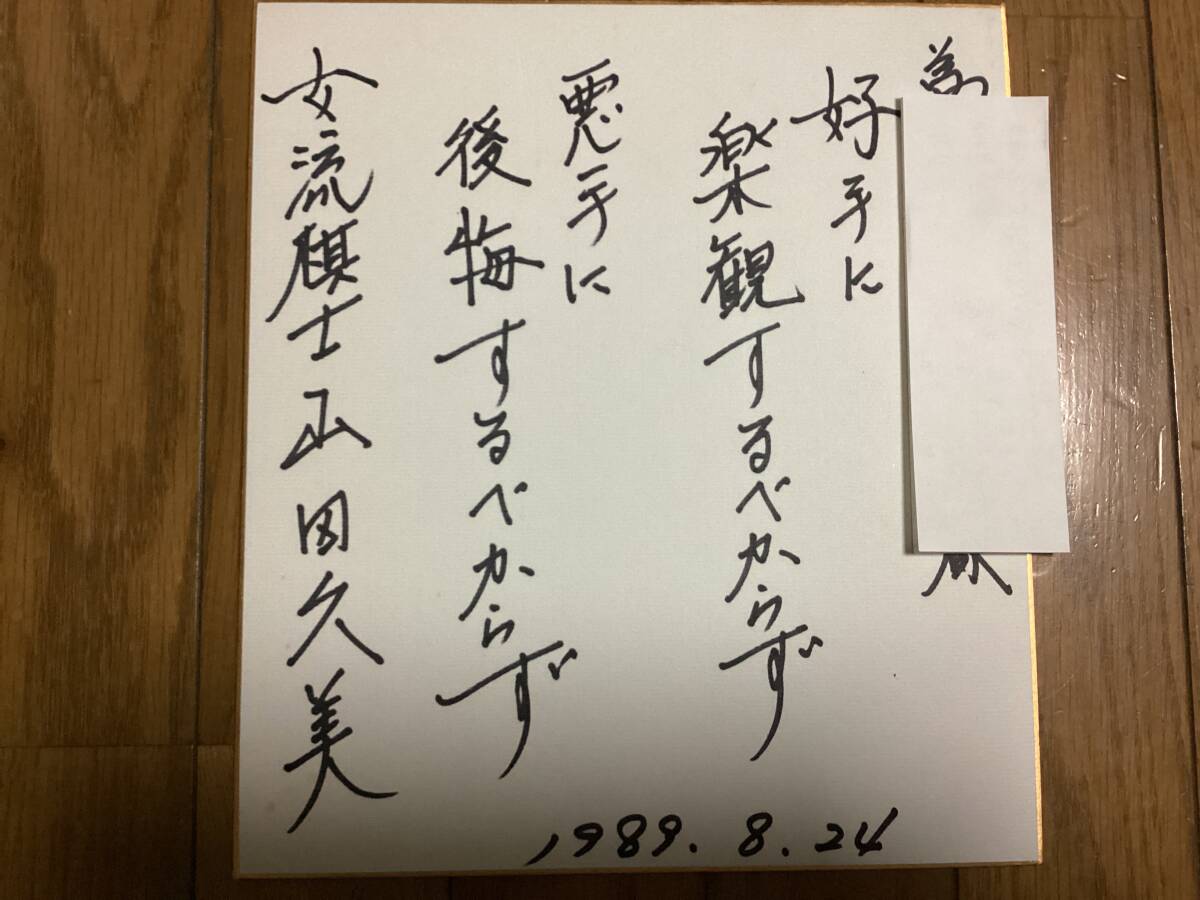 為
好手に
楽観するべからず
悪手に
後悔するべからず
女流棋士山田久美
1989.8.24